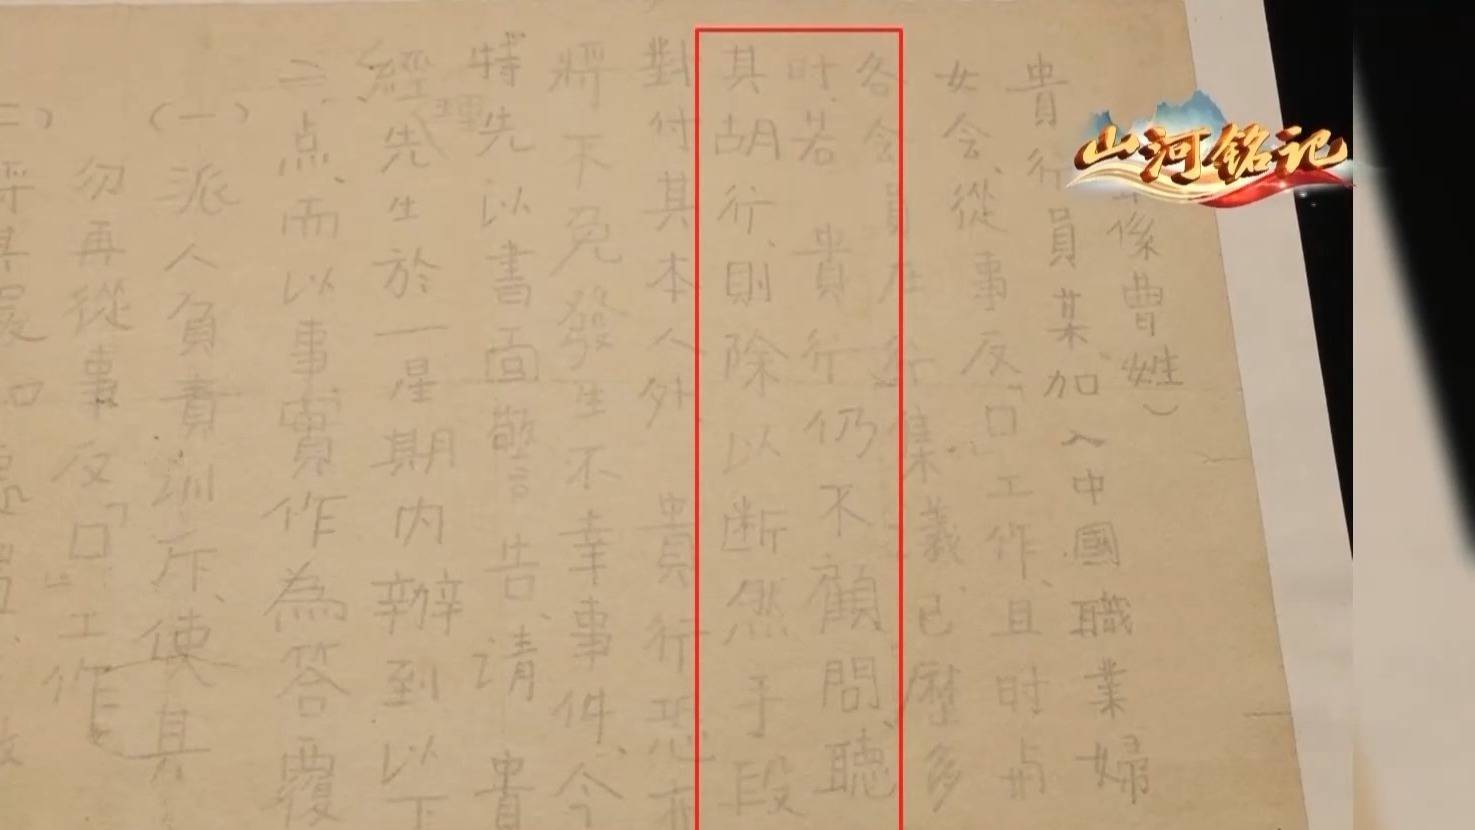 山河铭记
係曹姓）
貴行員某加入中國職業婦
女会、從事反「口」工作、且时与
各会員在 行集義、已歷多
时、若 貴行仍不顧問、聽
其胡行、則除以断然手段
對付其本人外、貴行恐亦
將不免發生不幸事件、今
特先以書面敬告、请 貴
經理先生於一星期内辦到以下
二点、而以事實作為答覆
（一）派人負責训斥、使其
勿再從事反「口」工作